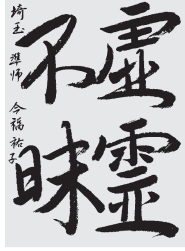 虚霊
不昧
埼玉 準師 今福祐子